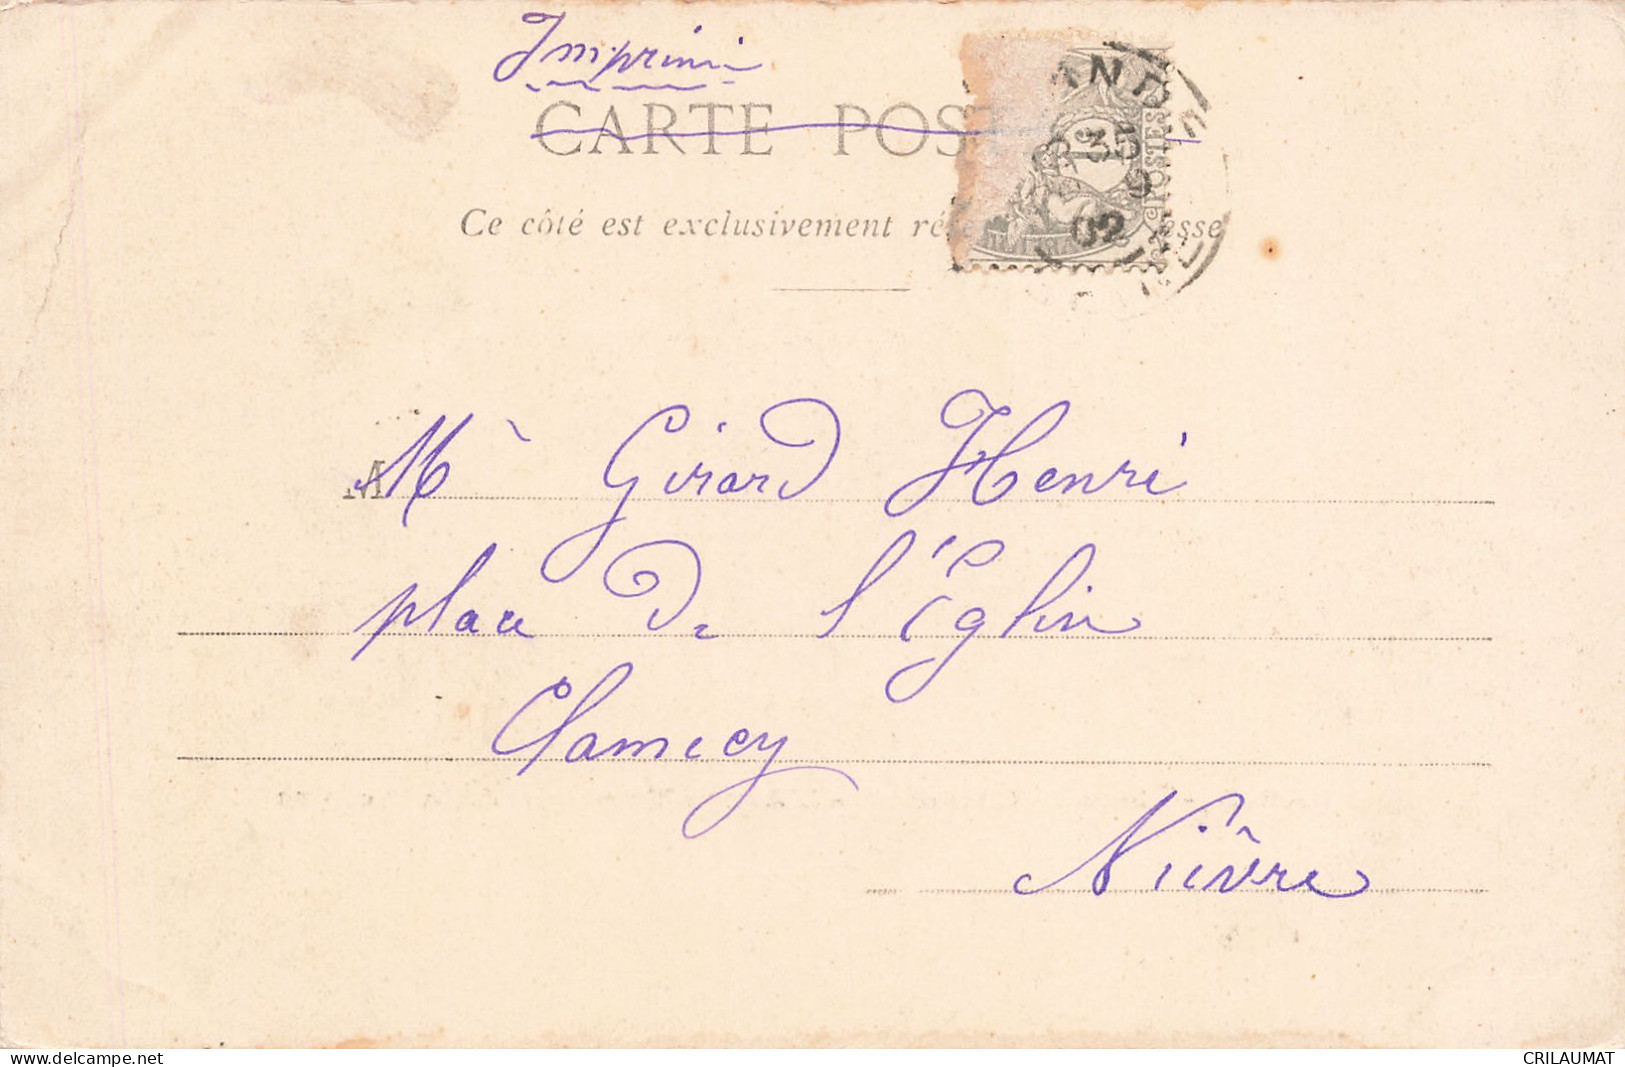 Imprimé
CARTE POST
Ce côté est exclusivement rése esse
POSTES
02
M r Girard Henri
place De l'Église
Clamecy
Nièvre
www.delcampe.net
CRILAUMAT